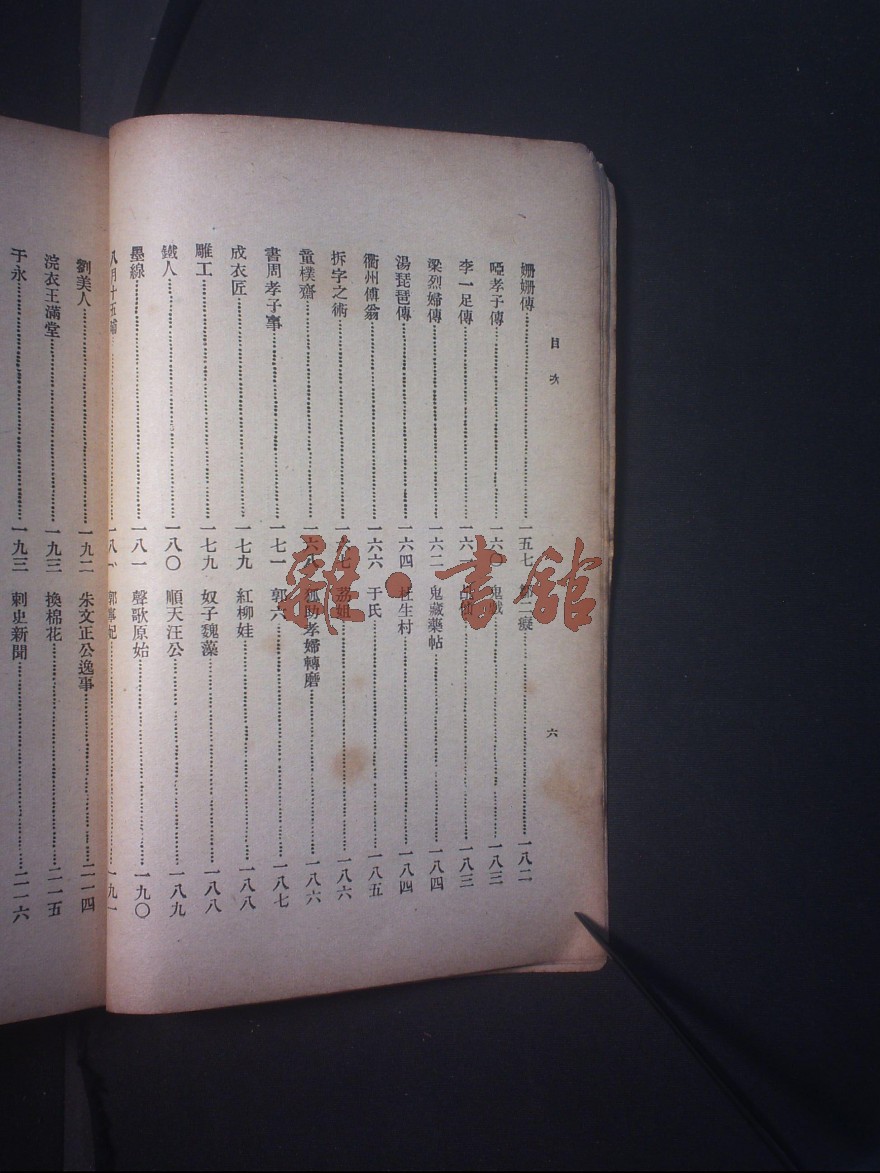 目次
六
姍姍傳……一五七
鄒二癡……一八二
啞孝子傳……一六〇
鬼戲……一八三
李一足傳……一六一
一八三
梁烈婦傳……一六二
鬼藏藥帖……一八四
湯琵琶傳……一六四
杜生村……一八四
衢州傅翁……一六六
于氏……一八五
拆字之術……一六七
荔姐……一八六
童樸齋……一六八
狐助孝婦轉磨……一八六
書周孝子事……一七一
郭六……一八七
成衣匠……一七九
紅柳娃……一八八
雕工……一七九
奴子魏藻……一八八
鐵人……一八〇
順天汪公……一八九
墨線……一八一
聲歌原始……一九〇
八月十五
一九一
劉美人……一九二
朱文正公逸事……二一四
浣衣王滿堂……一九三
換棉花……二一五
于永……一九三
刺史新聞……二一六
雜·書館